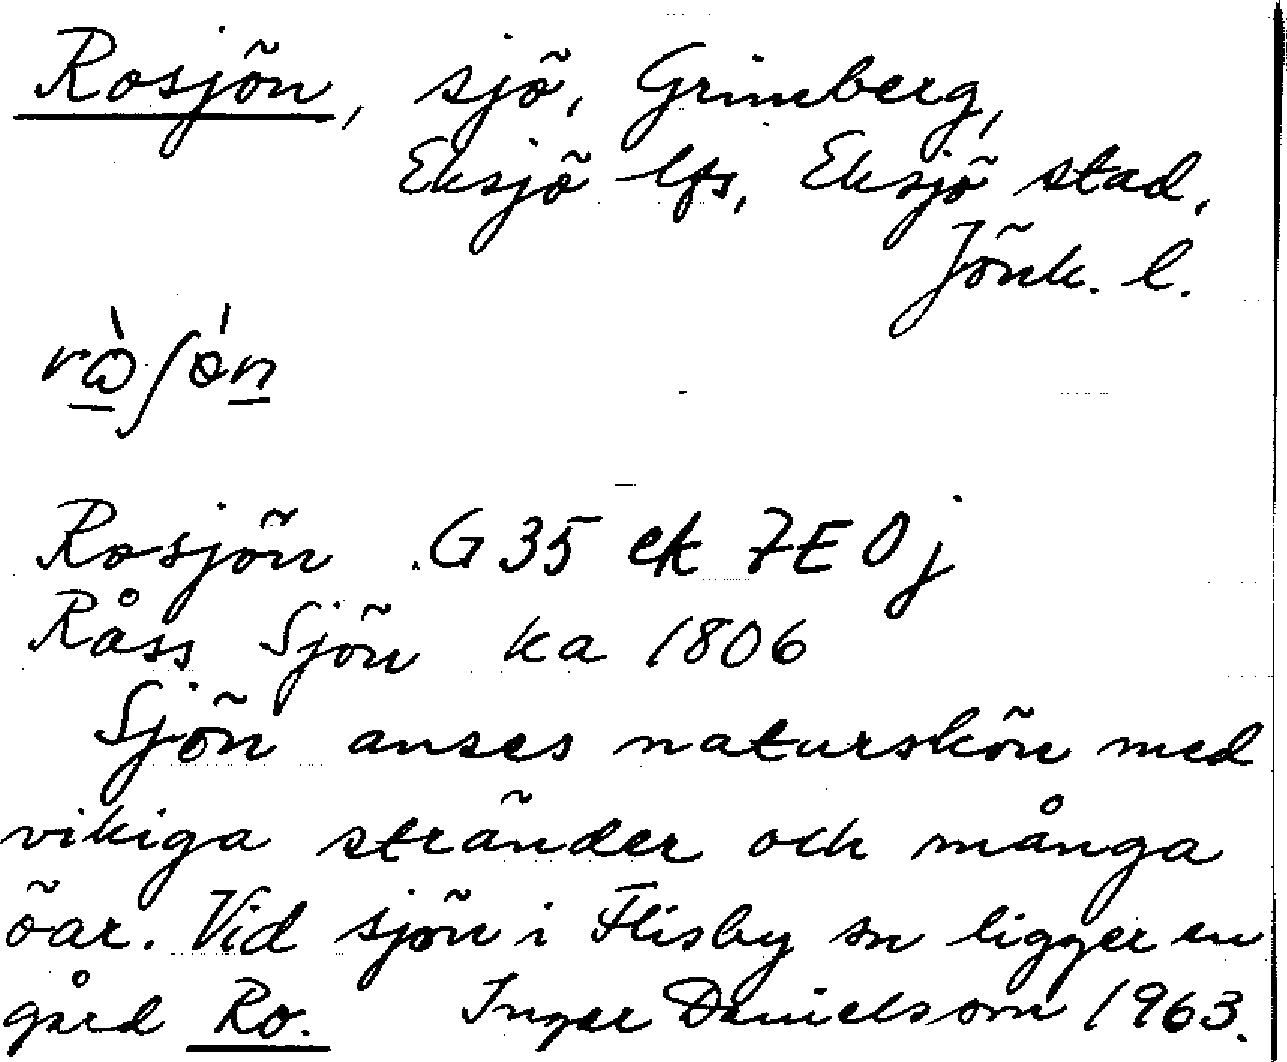 Rosjön, sjö, Grimberg,
Eksjö lfs, Eksjö stad,
Jönk. l.
Rosjön G35 ek 7E0j
Råss Sjön ka 1806
Sjön anses naturskön med
vikiga stränder och många
öar. Vid sjön i Flisby sn ligger en
gård Ro. Inger Danielsson 1963.